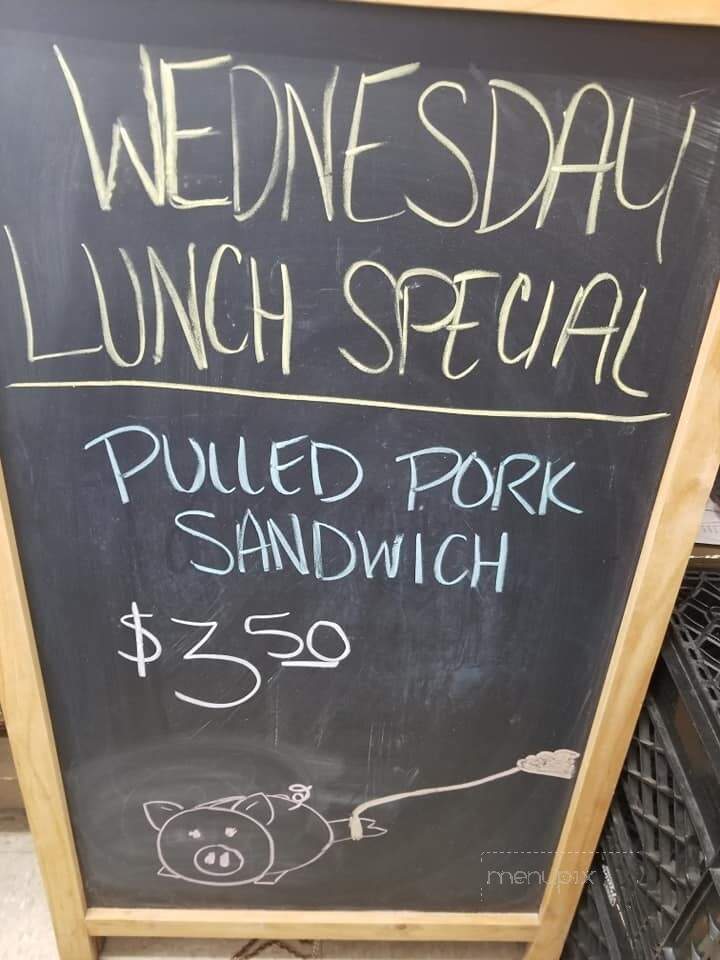 WEDNESDAY
LUNCH SPECIAL
PULLED PORK
SANDWICH
$3.50
menupix